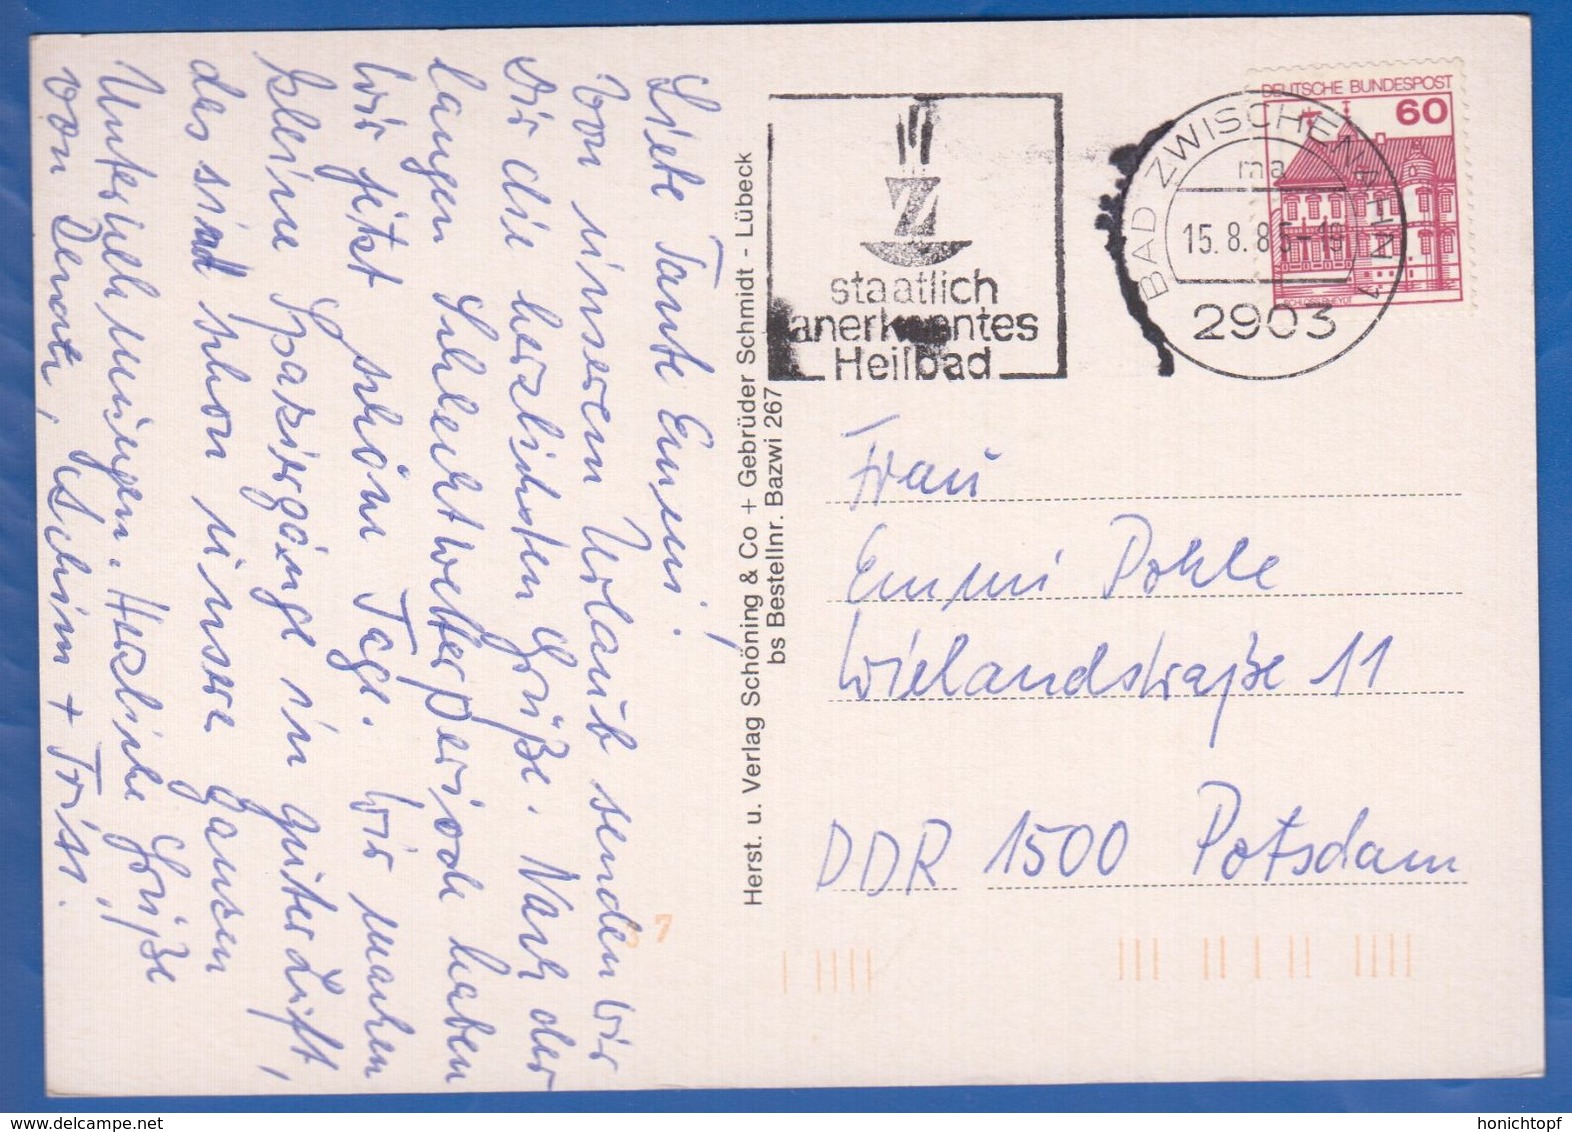 Liebe Tante Emmi!
Von unserem Urlaub senden wir
Dir die herzlichsten Grüße. Nach der
langen Schlechtwetterperiode haben
wir jetzt schöne Tage. Wir machen
kleine Spaziergänge in guter Luft,
das sind schon unsere ganzen
Unternehmungen. Herzliche Grüße
von Renate, Achim + Friss.
Herst. u. Verlag Schöning & Co + Gebrüder Schmidt - Lübeck
bs Bestellnr. Bazwi 267
staatlich
anerkanntes
Heilbad
BAD ZWISCHENAHN 1
ma
15.8.85-19
2903
DEUTSCHE BUNDESPOST
60
Frau
Emmi Pohle
Wielandstraße 11
DDR 1500 Potsdam
7
honichtopf
delcampe.net